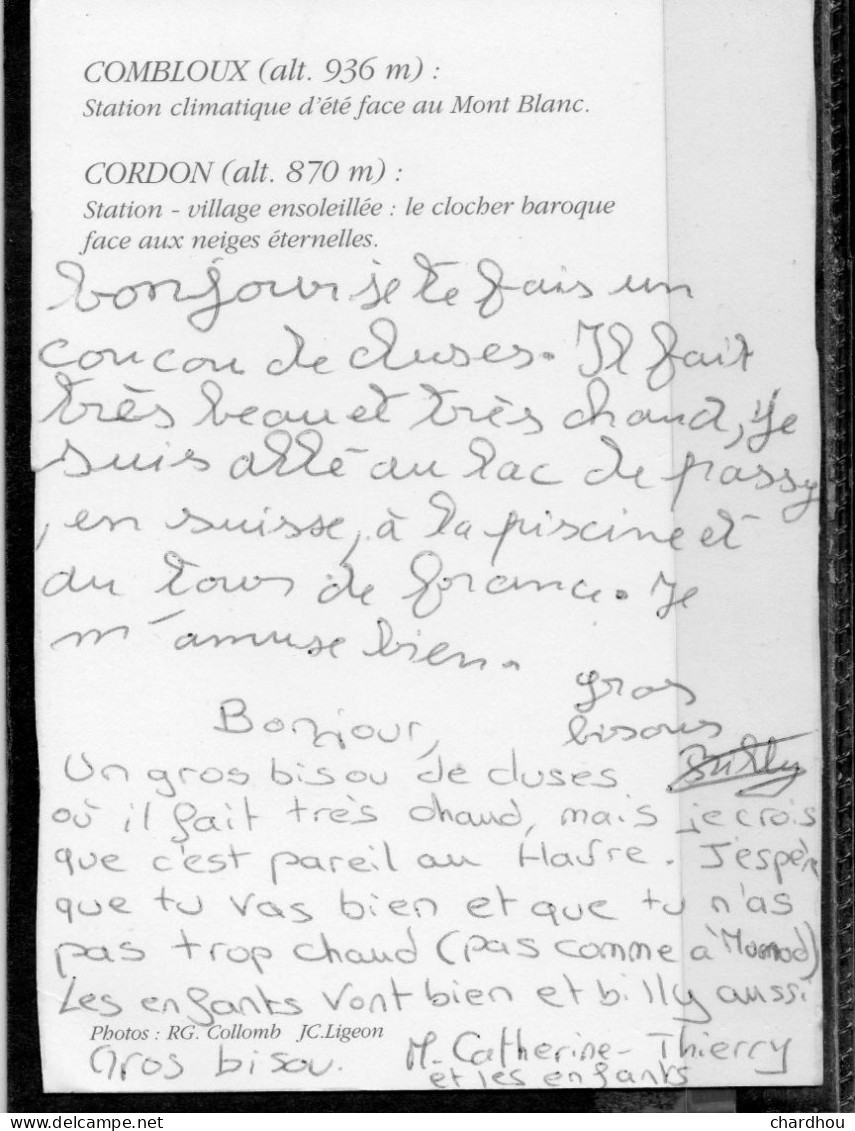 COMBLOUX (alt. 936 m) :
Station climatique d'été face au Mont Blanc.
CORDON (alt. 870 m) :
Station - village ensoleillée : le clocher baroque
face aux neiges éternelles.
bonjour je te fais un
coucou de cluses. Il fait
très beau et très chaud, je
suis allé au lac de passy
, en suisse, à la piscine et
au tour de france. Je
m'amuse bien.
gros
bisous
Billy
Bonjour,
Un gros bisou de cluses
où il fait très chaud, mais je crois
que c'est pareil au Havre. J'espère
que tu vas bien et que tu n'as
pas trop chaud (pas comme à
Les enfants vont bien et billy aussi
Photos : RG. Collomb JC.Ligeon
Gros bisou. M-Catherine-Thierry
et les enfants
chardhou